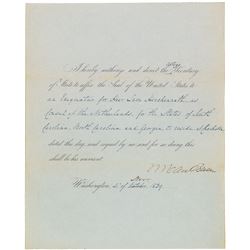 I hereby authorize and direct the Secretary
of State to affix the Seal of the United States to
an Exequatur for
Consul of the Netherlands, for the States of South
Carolina, North Carolina and Georgia, to reside
dated this day, and signed by me and for so doing this
shall be his warrant.
M Van Buren
Washington, 5th October 1839.